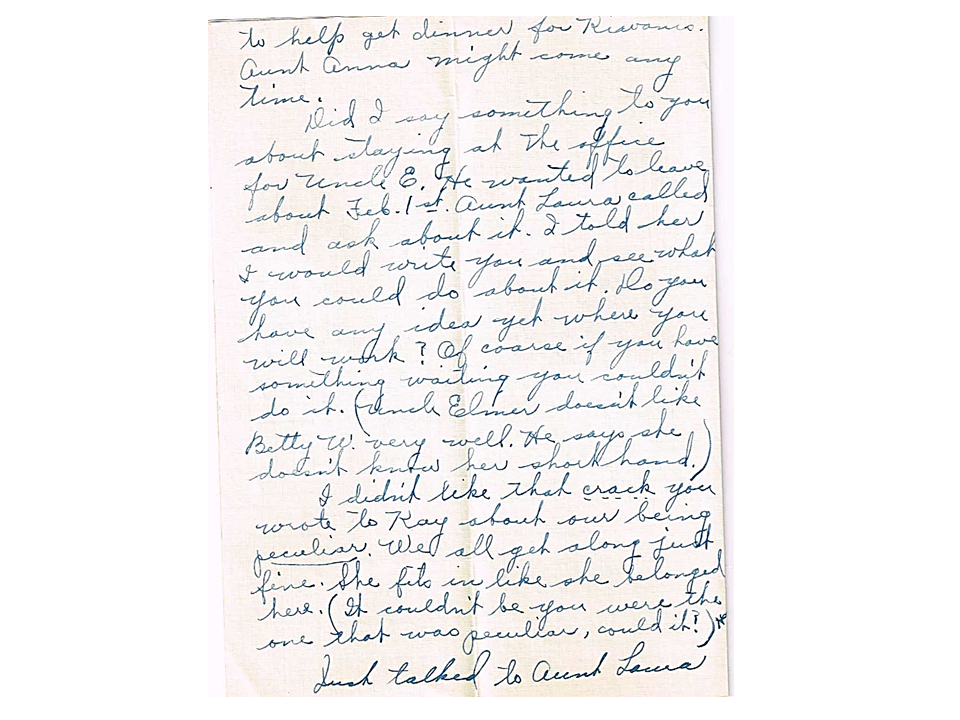 to help get dinner for Kiwanis.
Aunt Anna might come any
time.
Did I say something to you
about staying at the office
for Uncle E. He wanted to leave
about Feb. 1st. Aunt Laura called
and ask about it. I told her
I would write you and see what
you could do about it. Do you
have any idea yet where you
will work? Of coarse if you have
something waiting you couldn't
do it. (Uncle Elmer doesn't like
Betty W. very well. He says she
doesn't know her short hand.)
I didn't like that crack you
wrote to Kay about our being
peculiar. We all get along just
fine. She fits in like she belonged
here. (It couldn't be you were the
one that was peculiar, could it?)
Just talked to Aunt Laura